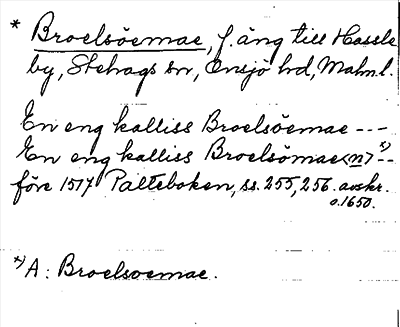 * Broelsöemae, f. äng till Hassle
by, Stehags sn, Onsjö hd, Malm.l.
En eng kalliss Broelsöemae ---
En eng kalliss Broelsömae<n> *) --
före 1517 Palteboken, ss. 255, 256. avskr.
o. 1650.
*) A: Broelsoemae.